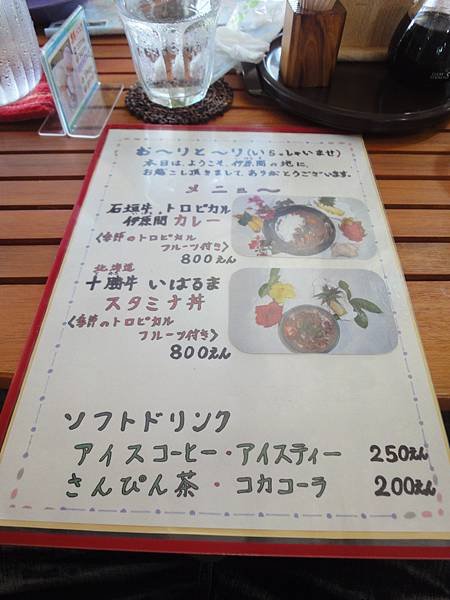 お〜りと〜り(いらっしゃいませ)
本日は、ようこそ、伊原間の地に、
お越し頂きまして、ありがとうございます。
メニュ〜
石垣牛、トロピカル
伊原間 カレー
〈季節のトロピカル
フルーツ付き〉
800えん
北海道
十勝牛 いばるま
スタミナ丼
〈季節のトロピカル
フルーツ付き〉
800えん
ソフトドリンク
アイスコーヒー・アイスティー 250えん
さんぴん茶・コカコーラ 200えん